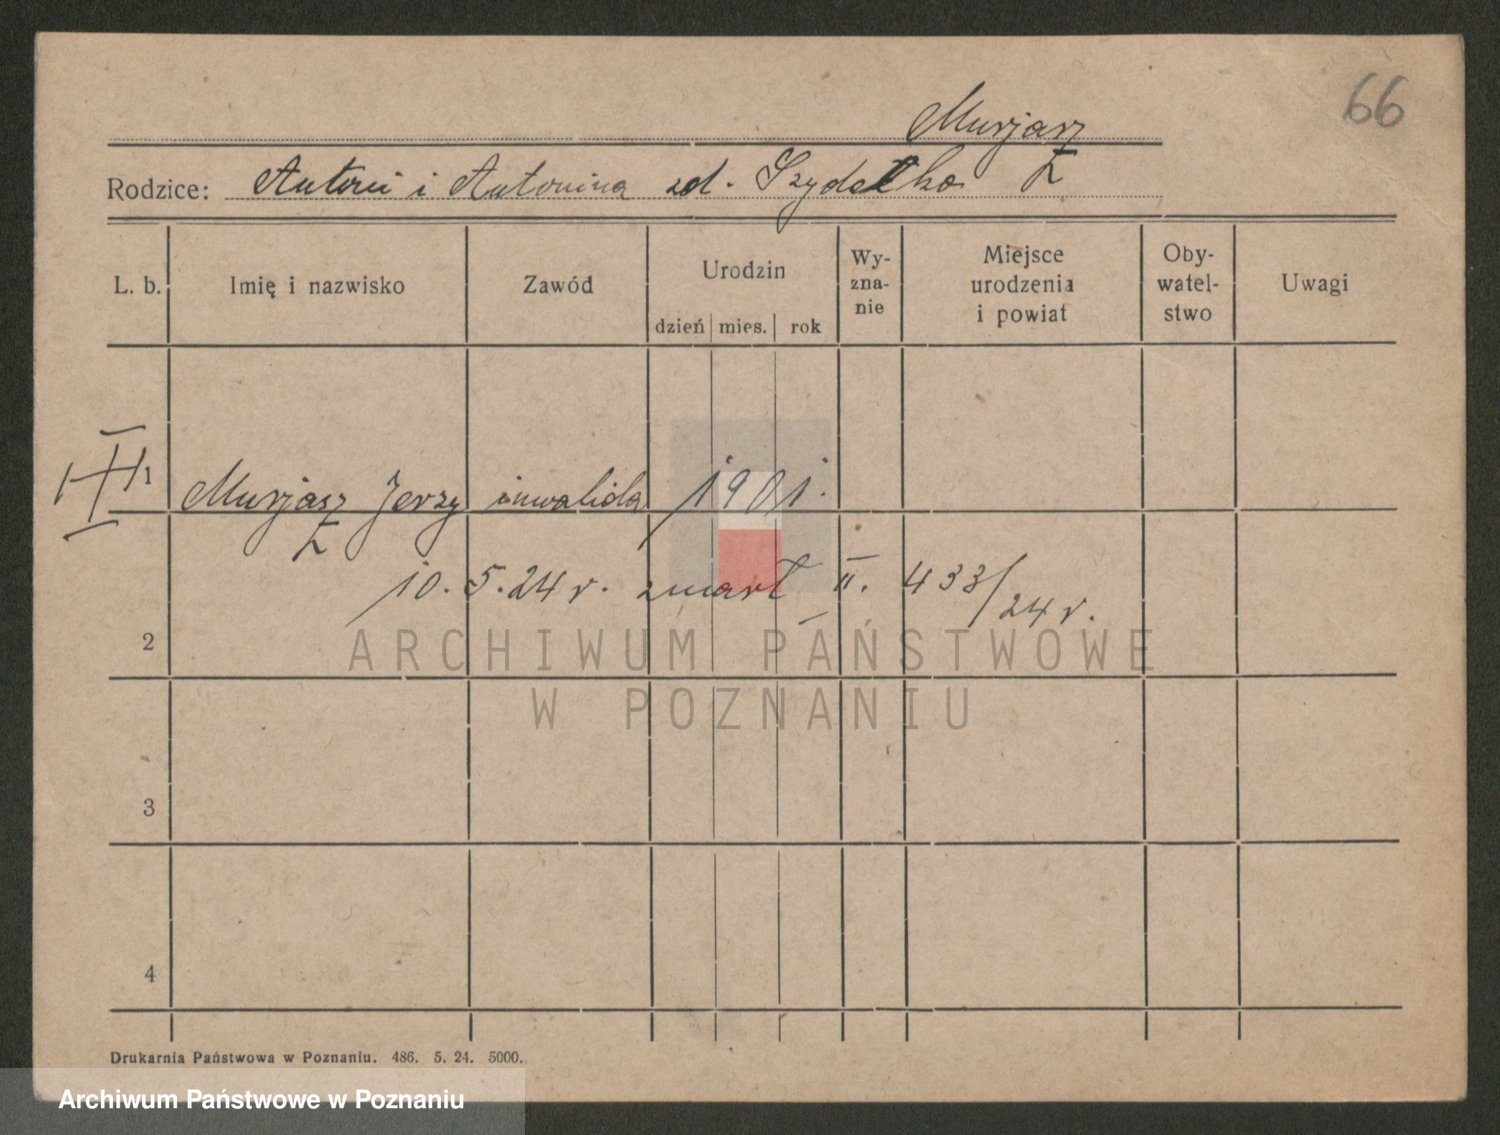 66
Murjasz
Ł
Rodzice: Antoni i Antonina zd. Szydełko
L. b. Imię i nazwisko Zawód Urodzin Wy-zna-nie Miejsce urodzenia i powiat Oby-watel-stwo Uwagi
dzień mies. rok
1 Murjasz Jerzy inwalida 1901.
Ł
10. 5. 24 r. zmarł II. 433/24 r.
2
3
4
ARCHIWUM PAŃSTWOWE
W POZNANIU
Drukarnia Państwowa w Poznaniu. 486. 5. 24. 5000.
Archiwum Państwowe w Poznaniu